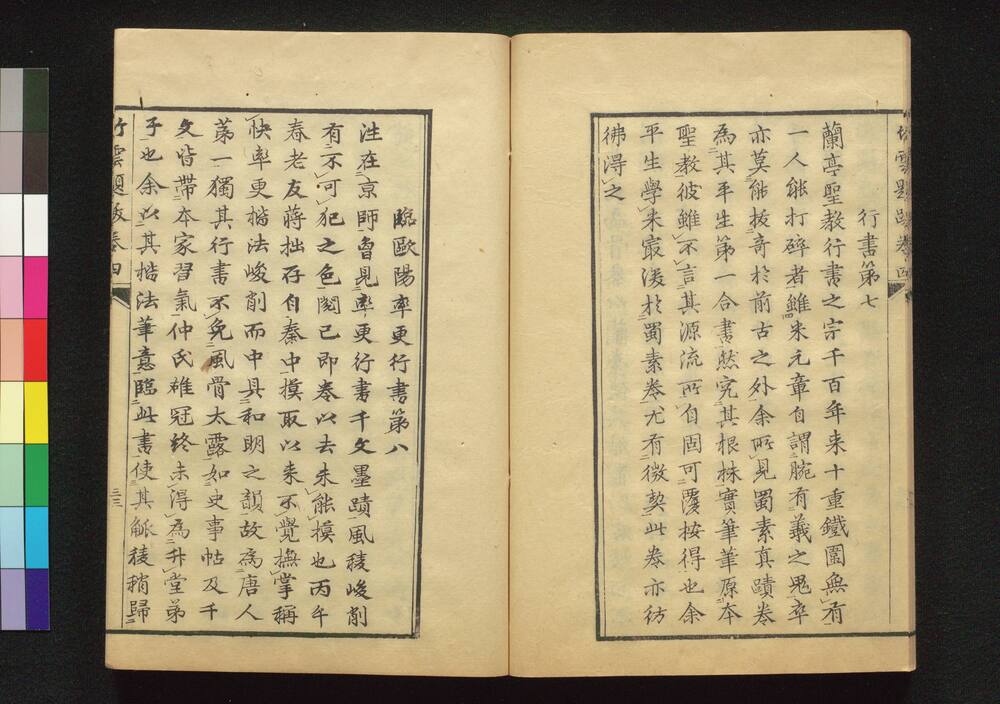 行書第七
蘭亭聖教行書之宗千百年来十重鐵圍無有
一人能打碎者雖米元章自謂腕有羲之鬼卒
亦莫能拔奇於前古之外余所見蜀素真蹟卷
為其平生第一合書然究其根株實筆筆原本
聖教彼雖不言其源流所自固可覆按得也余
平生學米寂湲於蜀素卷尤有微契此卷亦彷
彿得之
臨歐陽率更行書第八
往在京師曾見率更行書千文墨蹟風稜峻削
有不可犯之色閱已即卷以去未能摸也丙午
春老友蔣拙存自秦中摸取以来不覺撫掌稱
快率更楷法峻削而中具和明之韻故為唐人
第一獨其行書不免風骨太露如史事帖及千
文皆帶本家習氣仲氏雄冠終未得為升堂弟
子也余以其楷法筆意臨此書使其觚稜稍歸
竹雲題跋卷四
二三